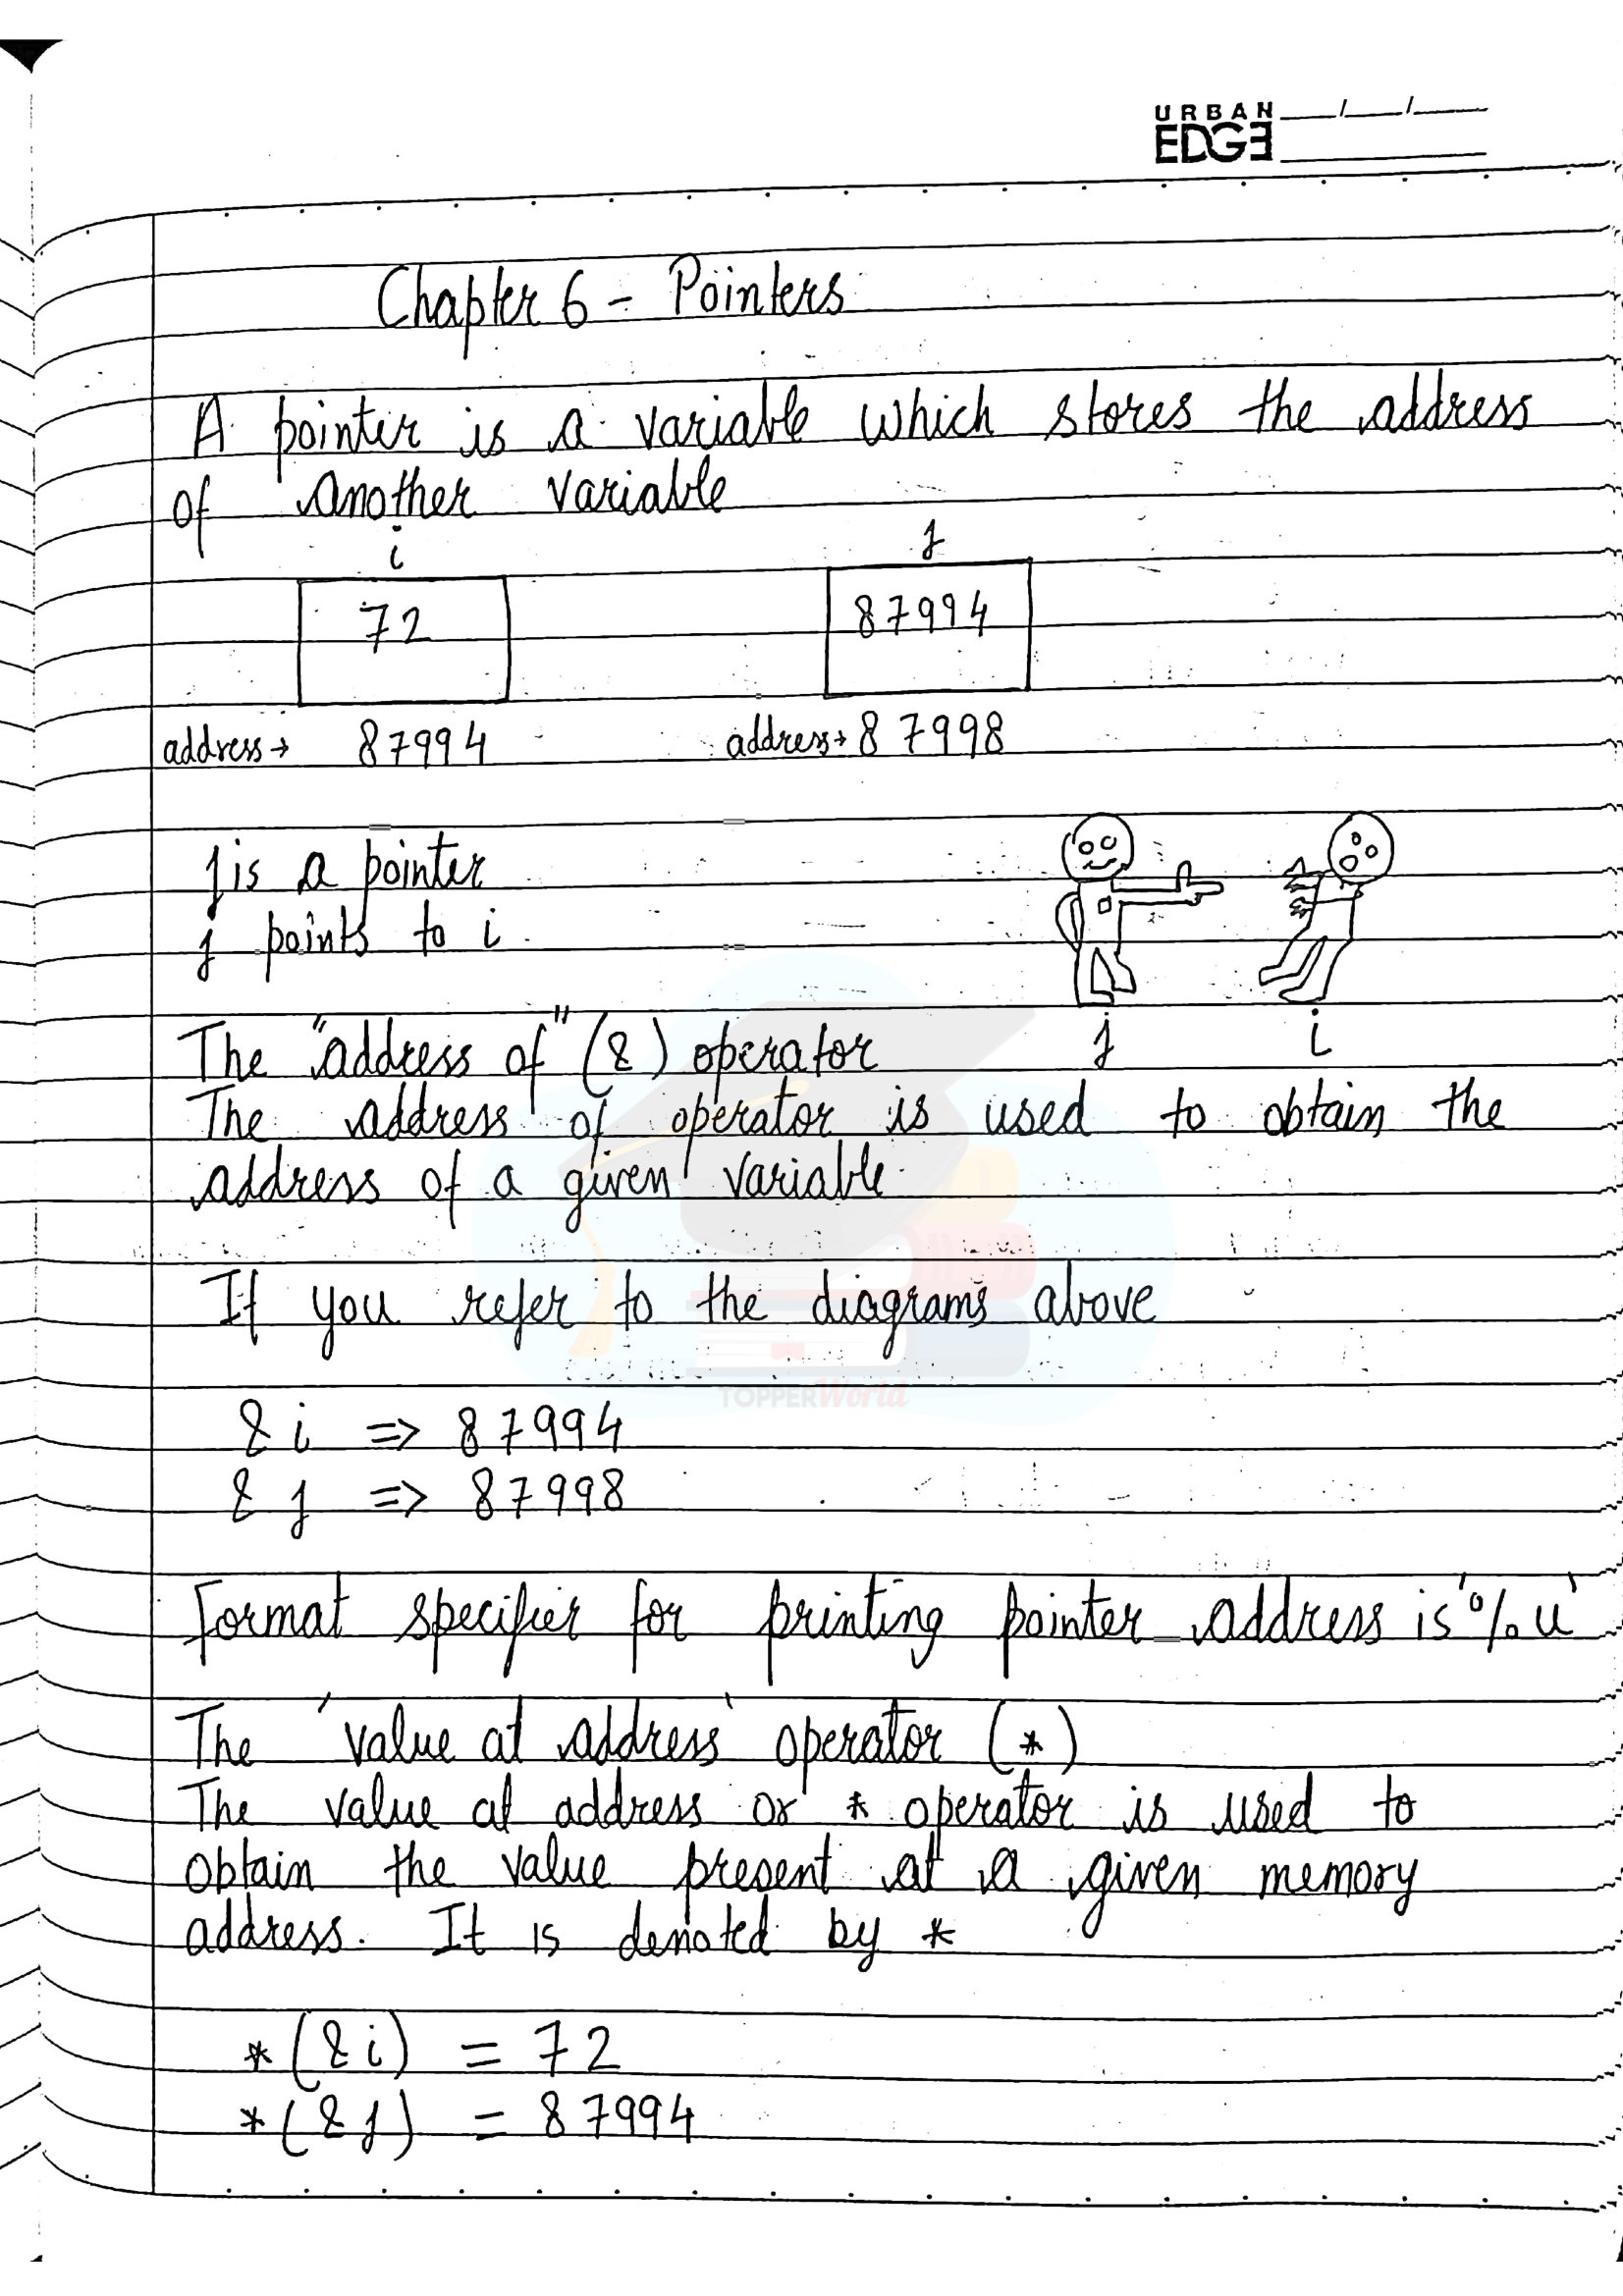 URBAN
EDGE
Chapter 6 - Pointers
A pointer is a variable which stores the address
of another variable
i j
72 87994
address→ 87994 address→ 87998
j is a pointer
j points to i
j i
The "address of" (&) operator
The address of operator is used to obtain the
address of a given variable
If you refer to the diagrams above
TOPPERWorld
&i => 87994
&j => 87998
Format specifier for printing pointer address is '%u'
The 'value at address' operator (*)
The value at address or * operator is used to
obtain the value present at a given memory
address. It is denoted by *
*(&i) = 72
*(&j) = 87994